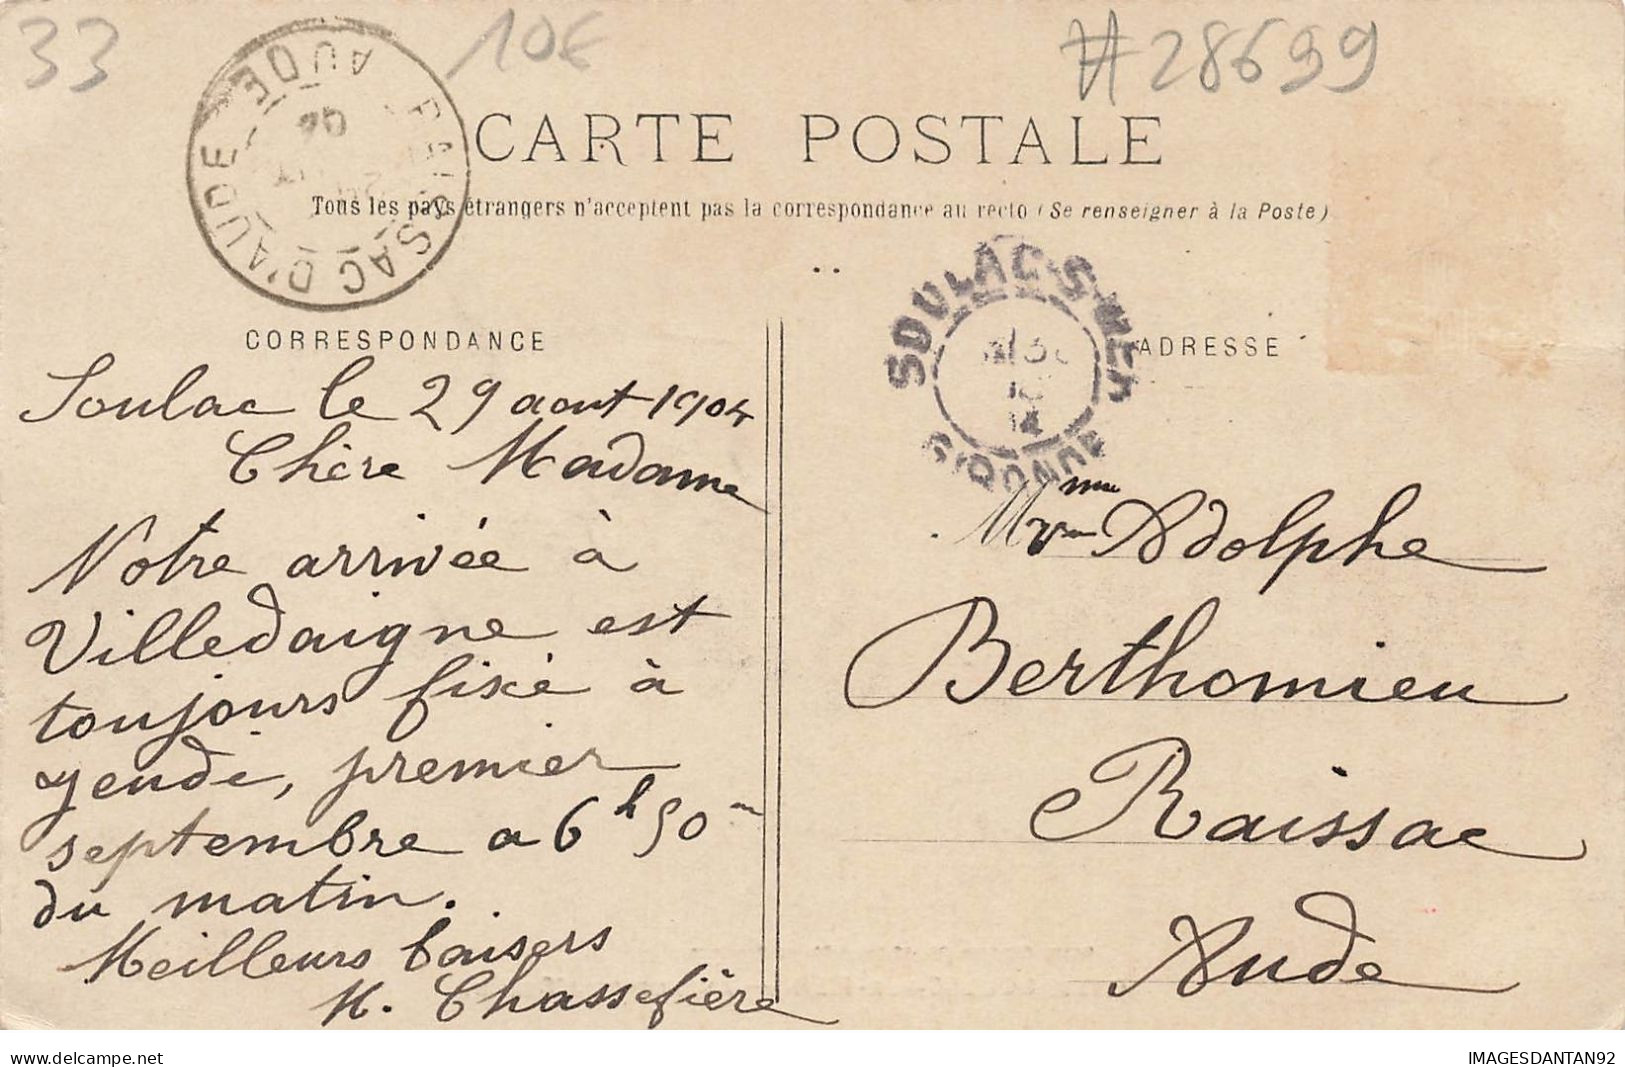 33
10€
#28699
RAISSAC D'AUDE AUDE
04
CARTE POSTALE
Tous les pays étrangers n'acceptent pas la correspondance au recto (Se renseigner à la Poste)
SOULAC-S-MER
GIRONDE
CORRESPONDANCE
ADRESSE
Soulac le 29 aout 1904
Chère Madame
Notre arrivée à
Villedaigne est
toujours fixé à
jeudi, premier
septembre a 6h50m
du matin.
Meilleurs baisers
M. Chassefière
Mme Adolphe
Berthomieu
Raissac
Aude
delcampe.net
IMAGESDANTAN92